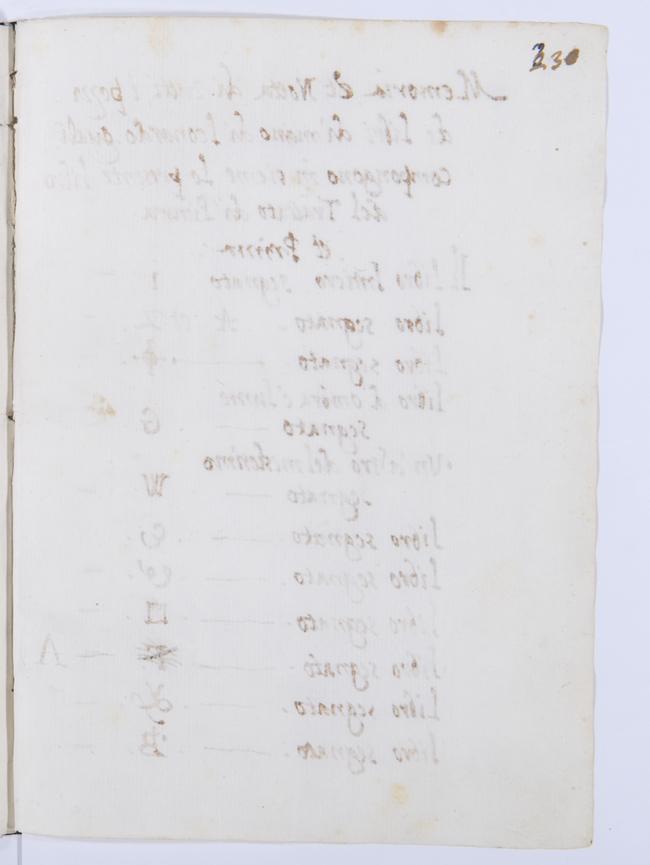 230
Memoria et Notta di tutti i pezzi
de libri di mano di Leonardo quali
compongono insieme lo presente libro
del Trattato di Pittura
et Prima
Il libro Intiero segnato 1
libro segnato A
libro segnato
libro d'ombra e lume
segnato G
Un libro del medesimo
segnato W
libro segnato
libro segnato
libro segnato □
libro segnato Λ
libro segnato
libro segnato B